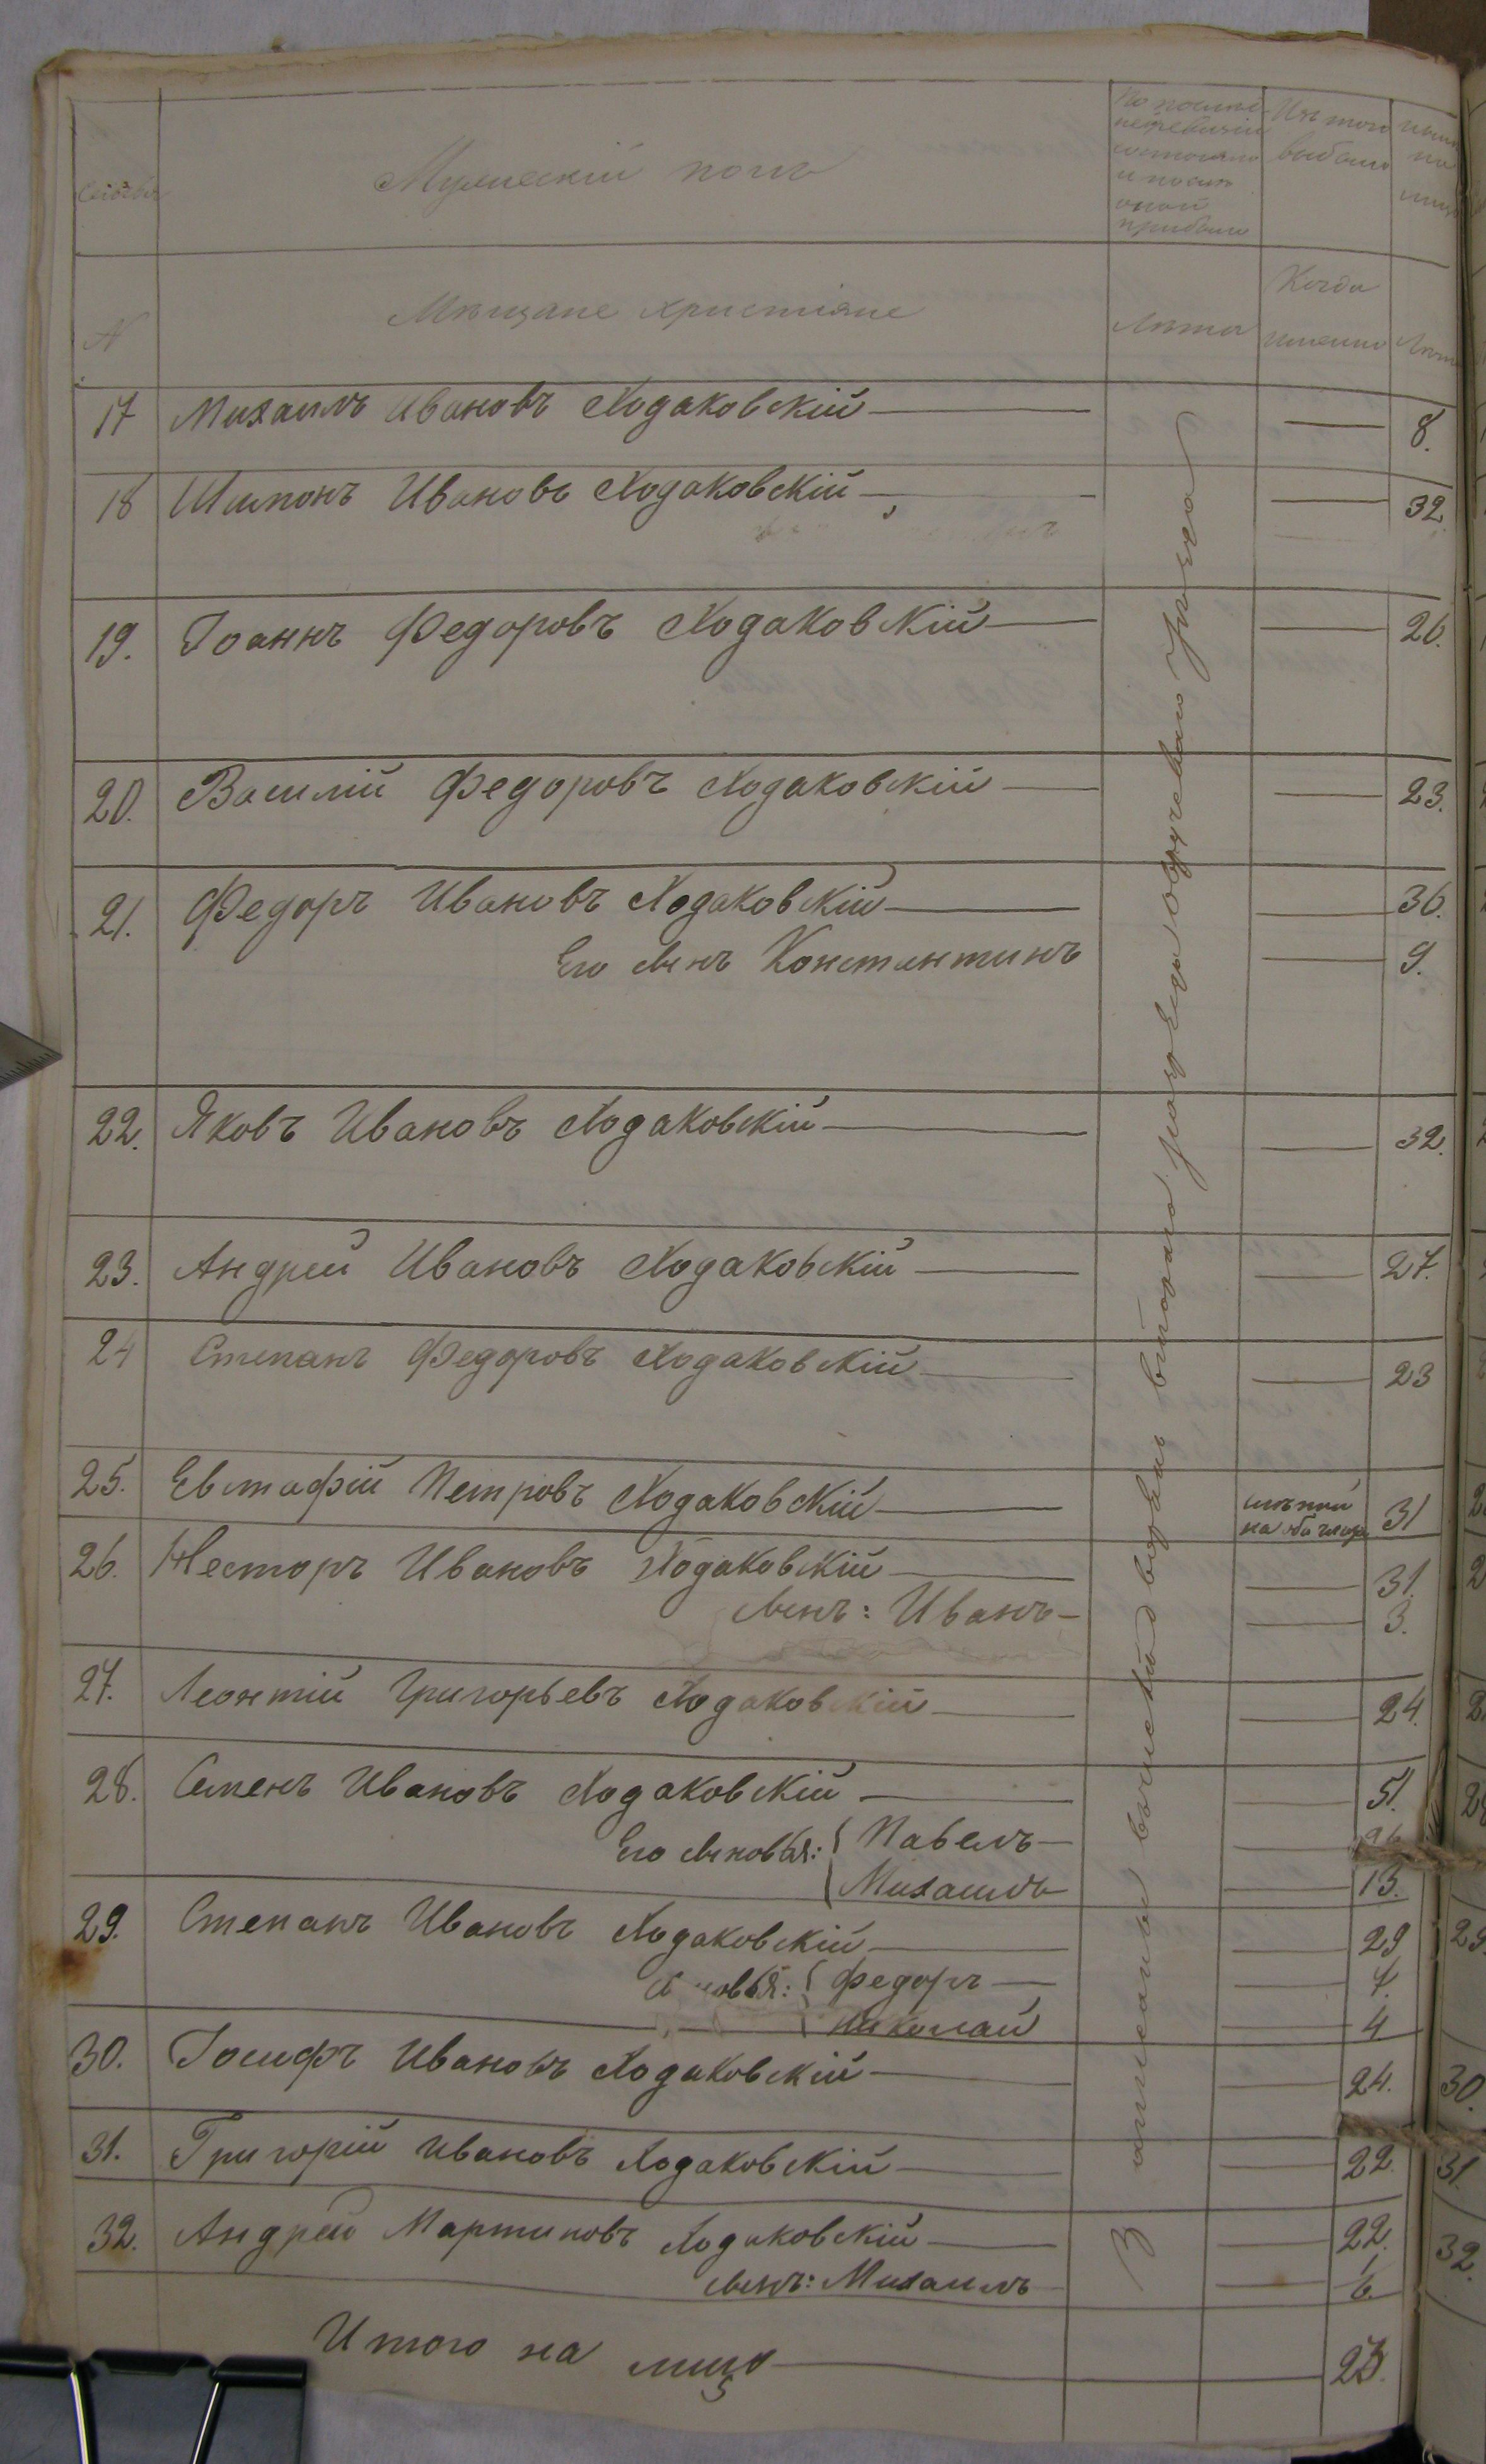 Мужескій полъ
По послѣд-
ней ревизіи
состояло
и послѣ
оной
прибыло
Изъ того
выбыло
№
Мѣщане христіяне
Лѣта
Когда
именно
Лѣта
17 Михаилъ Ивановъ Ходаковскій 8.
18 Шимонъ Ивановъ Ходаковскій 32
19. Іоаннъ Федоровъ Ходаковскій 26.
20. Василій Федоровъ Ходаковскій 23.
21. Федоръ Ивановъ Ходаковскій 36.
Его сынъ Константинъ 9.
22. Яковъ Ивановъ Ходаковскій 32.
23. Андрей Ивановъ Ходаковскій 27.
24 Степанъ Федоровъ Ходаковскій 23
25. Евстафій Петровъ Ходаковскій слѣпой на оба глаза 31
26. Несторъ Ивановъ Ходаковскій 31.
сынъ: Иванъ 3.
27. Леонтій Григорьевъ Ходаковскій 24.
28. Семенъ Ивановъ Ходаковскій 51.
Его сыновья: Павелъ
Михаилъ 13.
29. Степанъ Ивановъ Ходаковскій 29
сыновья: Федоръ 7.
Николай 4
30. Іосифъ Ивановъ Ходаковскій 24.
31. Григорій Ивановъ Ходаковскій 22.
32. Андрей Мартиновъ Ходаковскій 22.
сынъ: Михаилъ
Итого на лицо
втораго разряда овручскаго уѣзда
29.
30.
31.
32.